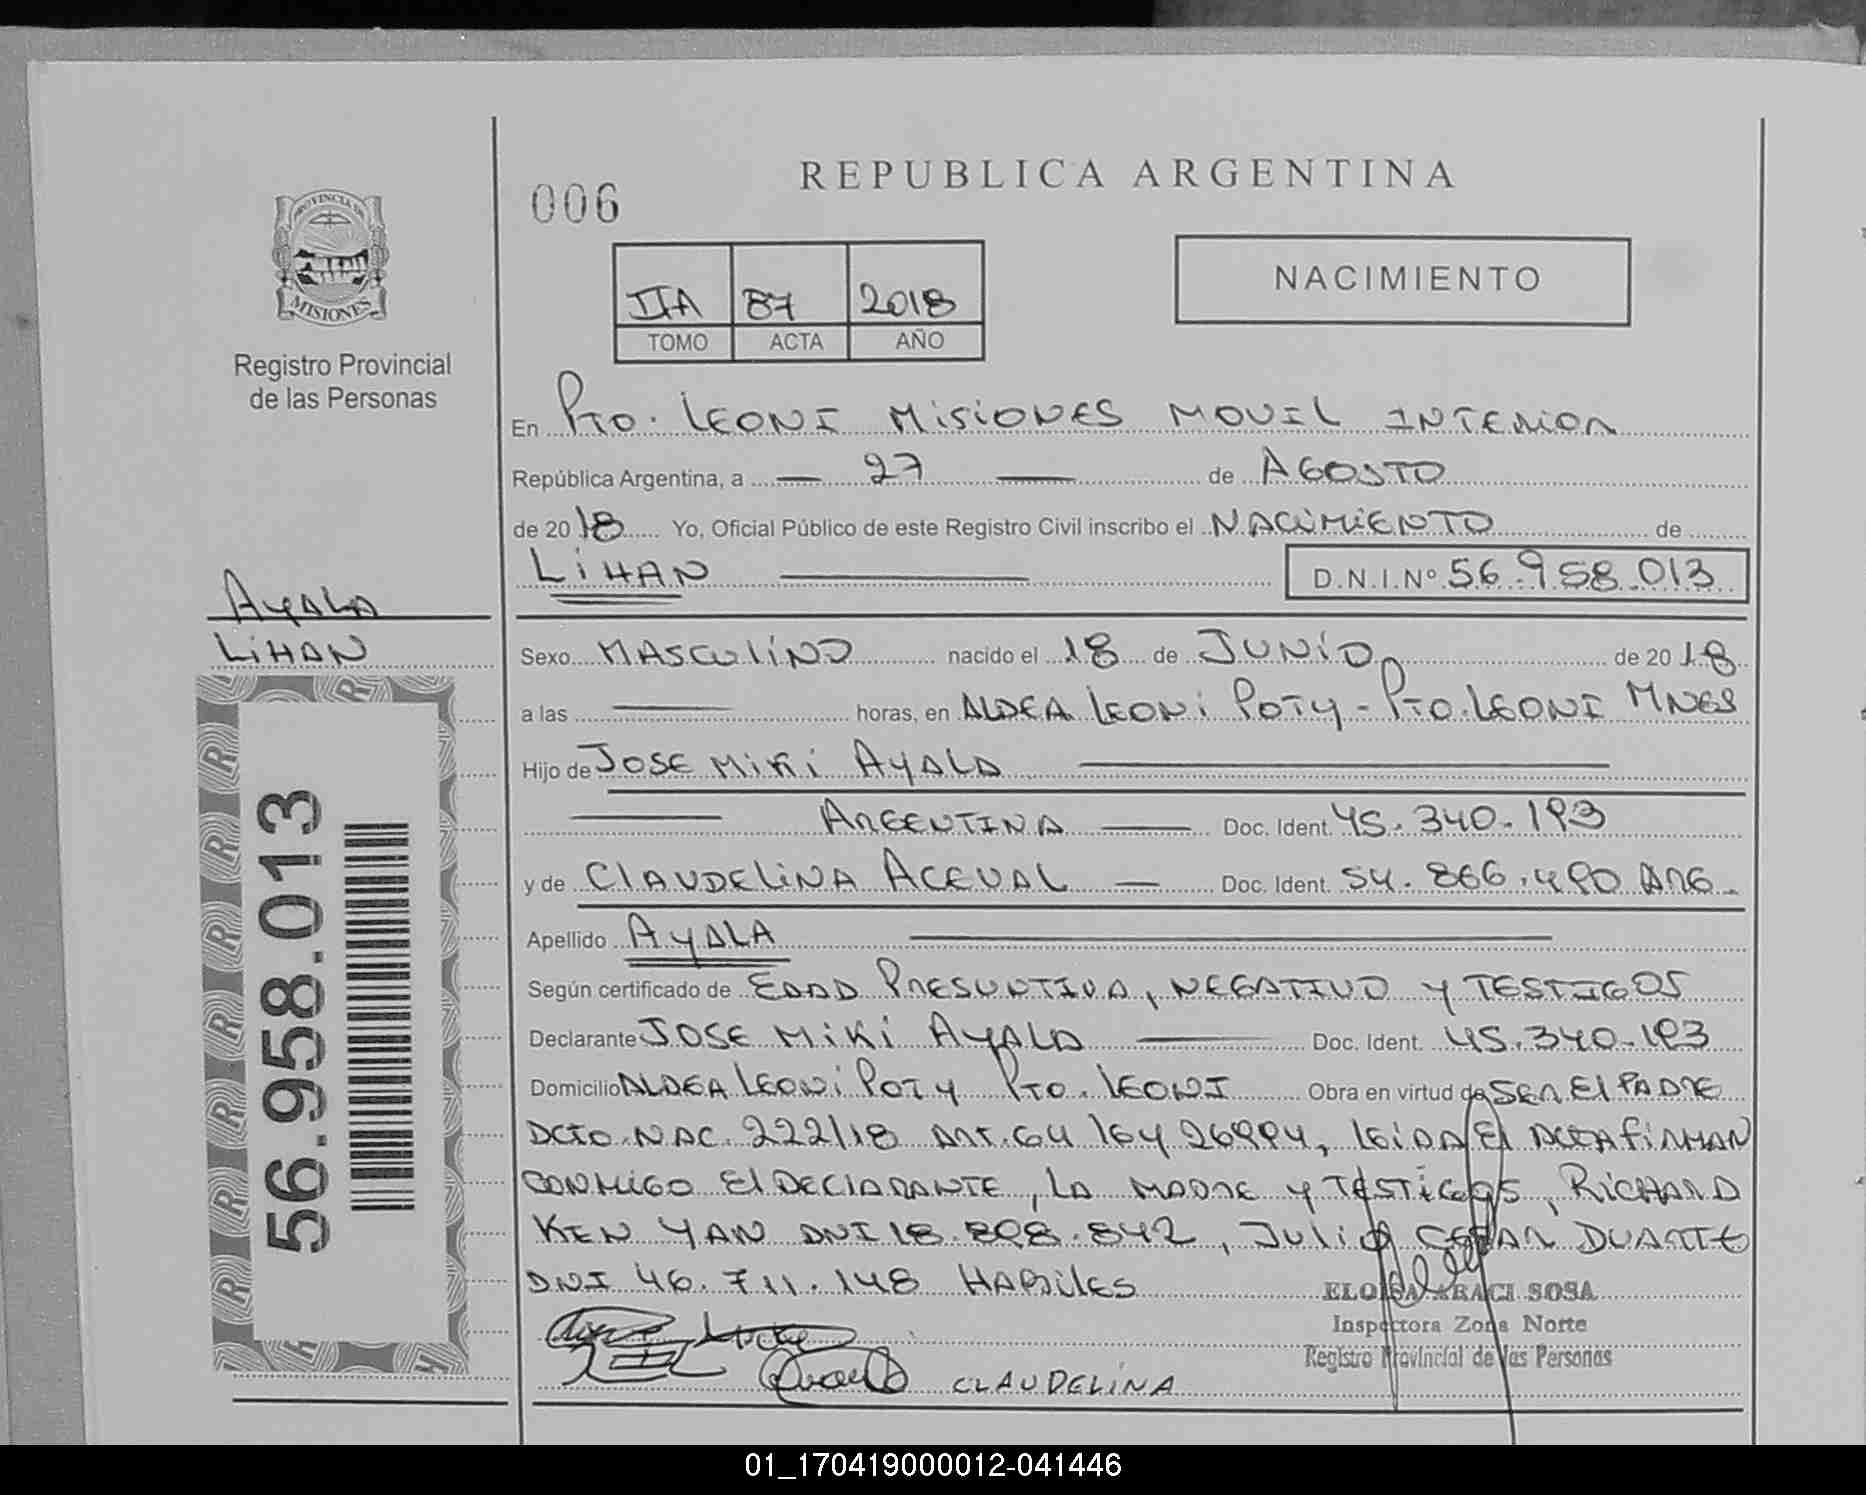 REPUBLICA ARGENTINA
006
NACIMIENTO
IIA 87 2018
TOMO ACTA AÑO
PROVINCIA DE
MISIONES
Registro Provincial
de las Personas
En Pto. Leoni Misiones Movil Interior
República Argentina, a — 27 — de Agosto
de 2018 Yo, Oficial Público de este Registro Civil inscribo el Nacimiento de
Lihan — D.N.I.Nº 56.958.013
Ayala
Lihan
Sexo Masculino nacido el 18 de Junio de 2018
a las — horas, en Aldea Leoni Poty - Pto. Leoni Mnes
Hijo de Jose Miki Ayala —
— Argentina — Doc. Ident. 45.340.193
y de Claudelina Aceval — Doc. Ident. 54.866.490 Arg
Apellido Ayala —
Según certificado de Edad Presuntiva, Negativo y Testigos
Declarante Jose Miki Ayala — Doc. Ident. 45.340.193
Domicilio Aldea Leoni Poty Pto. Leoni Obra en virtud de Ser El Padre
Dcto. Nac. 222/18 Art. 64 ley 26994, leida El Acta firman
conmigo El Declarante, La Madre y Testigos, Richard
Ken Yan DNI 18.898.842, Julio Cesar Duarte
DNI 46.711.148 Habiles
ELOISA ARACI SOSA
Inspectora Zona Norte
Registro Provincial de las Personas
CLAUDELINA
56.958.013
R R R R R R R
01_170419000012-041446